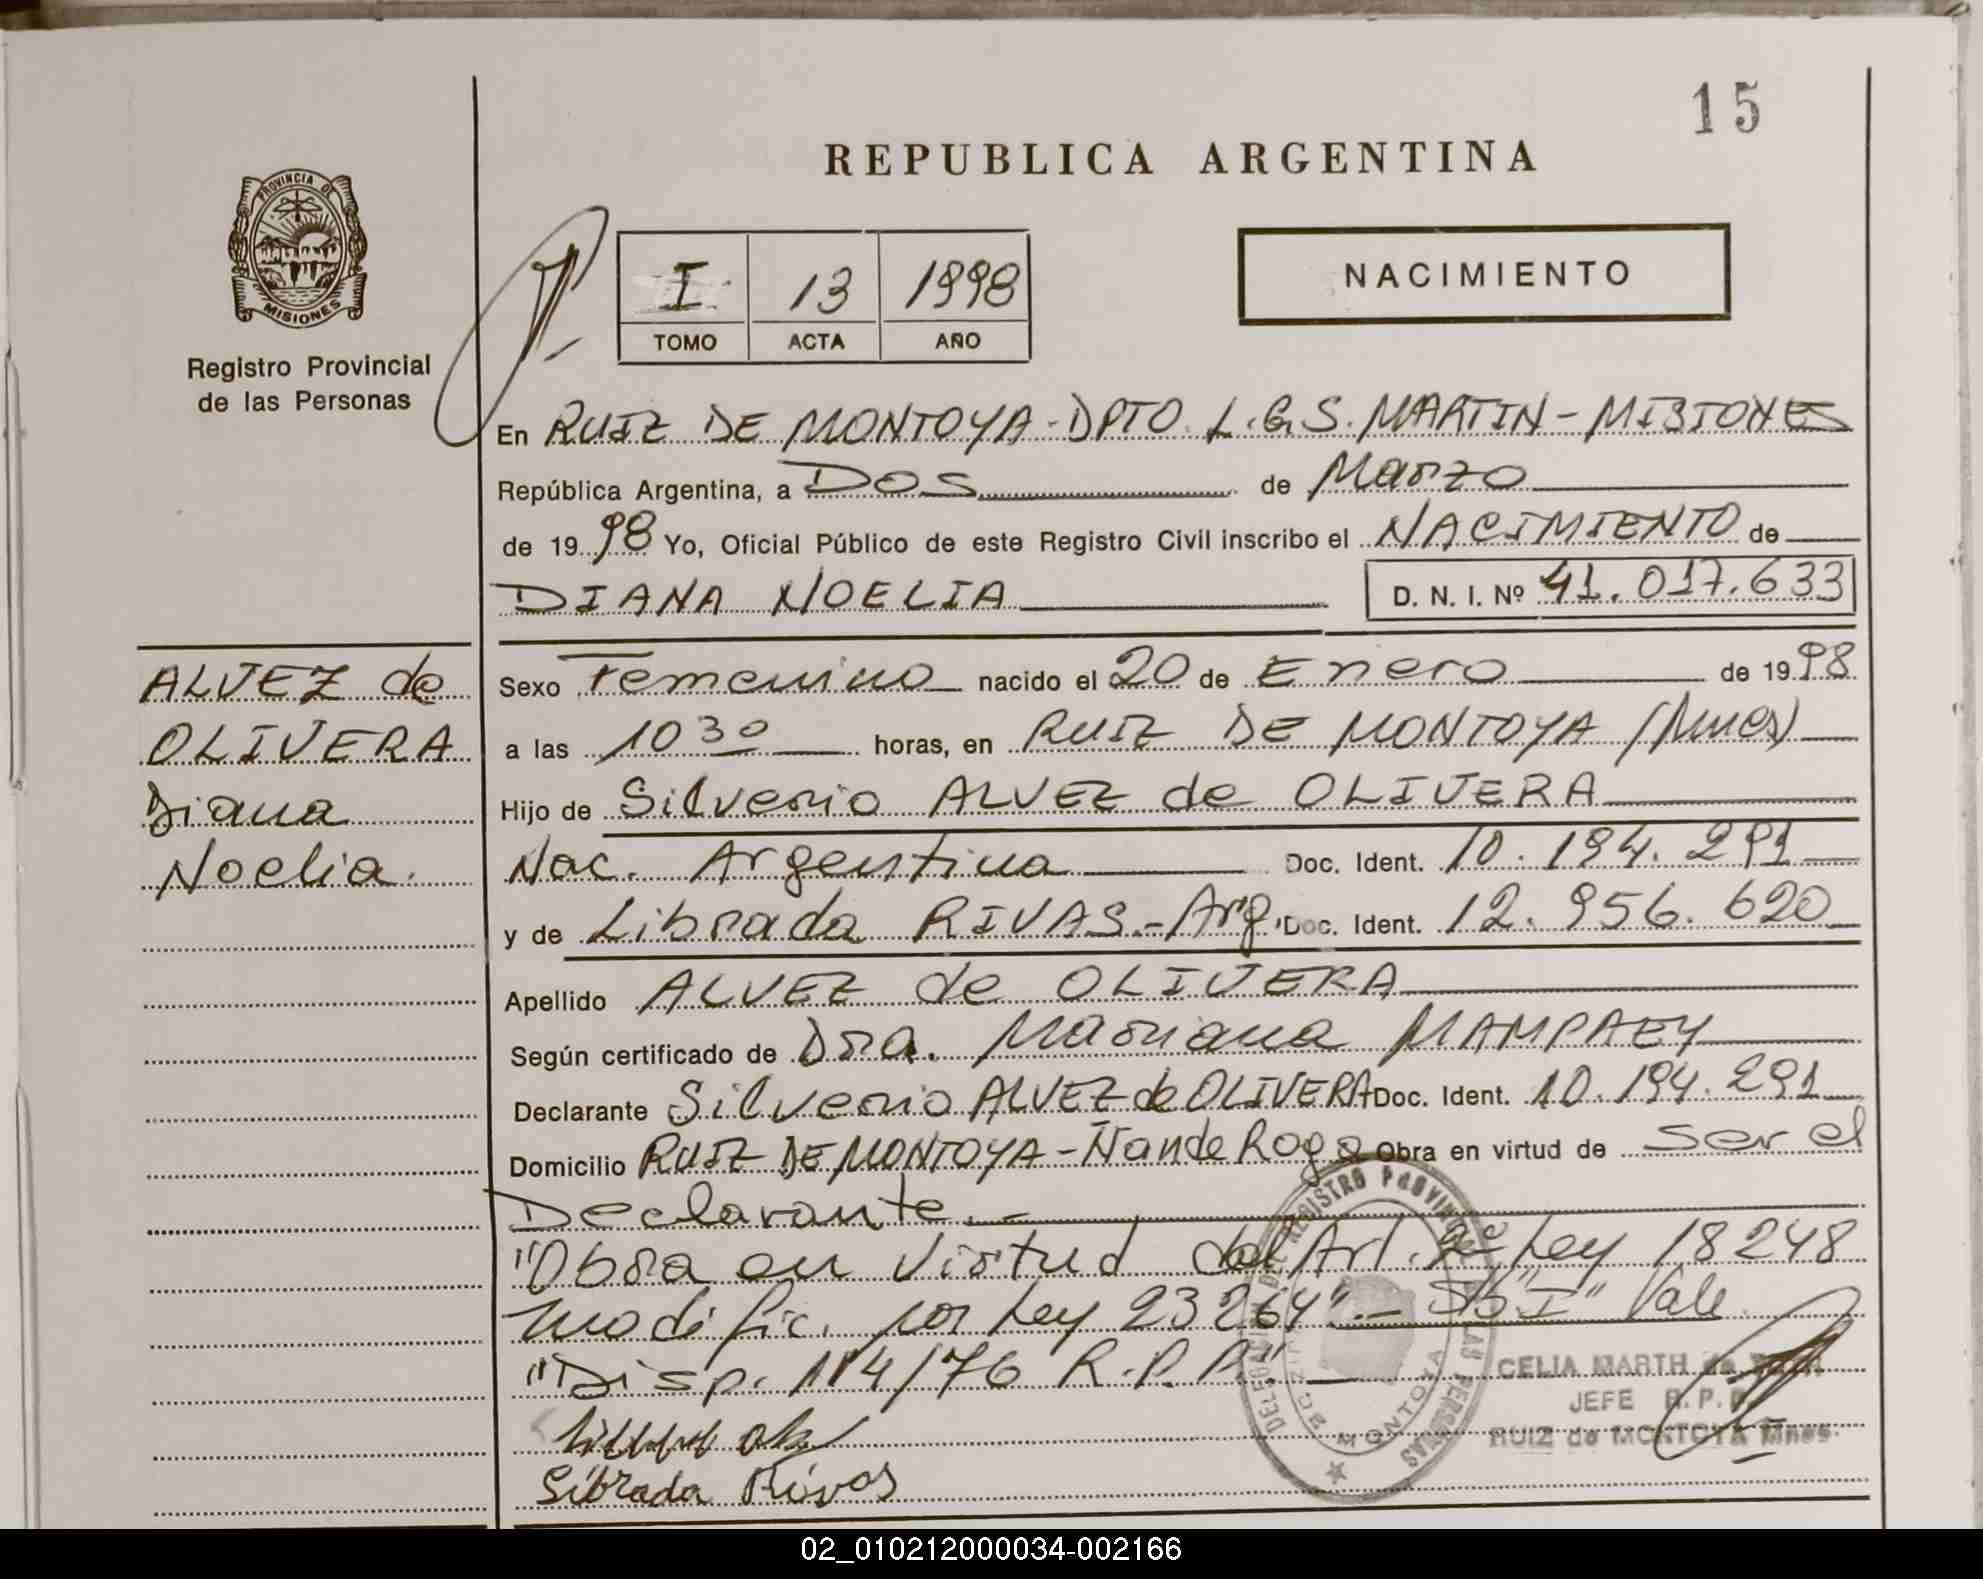 15
REPUBLICA ARGENTINA
PROVINCIA DE
MISIONES
Registro Provincial
de las Personas
I 13 1998
TOMO ACTA AÑO
NACIMIENTO
En RUIZ DE MONTOYA - DPTO. L.G.S. MARTIN - MISIONES
República Argentina, a DOS de Marzo
de 1998 Yo, Oficial Público de este Registro Civil inscribo el NACIMIENTO de
DIANA NOELIA D. N. I. Nº 41.017.633
ALVEZ de
OLIVERA
Diana
Noelia.
Sexo Femenino nacido el 20 de Enero de 1998
a las 10 30 horas, en RUIZ DE MONTOYA (Mnes)
Hijo de Silverio ALVEZ de OLIVERA
Nac. Argentina Doc. Ident. 10.194.291
y de Librada RIVAS.- Arg. Doc. Ident. 12.956.620
Apellido ALVEZ de OLIVERA
Según certificado de Dra. Mariana MAMPAEY
Declarante Silverio ALVEZ de OLIVERA Doc. Ident. 10.194.291
Domicilio RUIZ DE MONTOYA - Ñande Roga Obra en virtud de ser el
Declarante.-
"Obra en virtud del Art. 2º Ley 18248
modific. por Ley 23264".- "I" Vale
"Disp. 114/76 R.P.P."
CELIA MARTH de
JEFE R.P.P.
RUIZ de MONTOYA Mnes.
Librada Rivas
DELEGACION DEL REGISTRO PROVINCIAL DE LAS PERSONAS
RUIZ DE MONTOYA
02_010212000034-002166